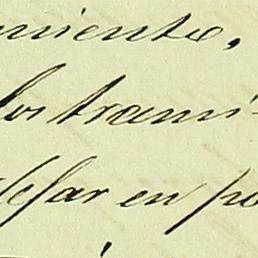 miento,
los trami-
desar en po